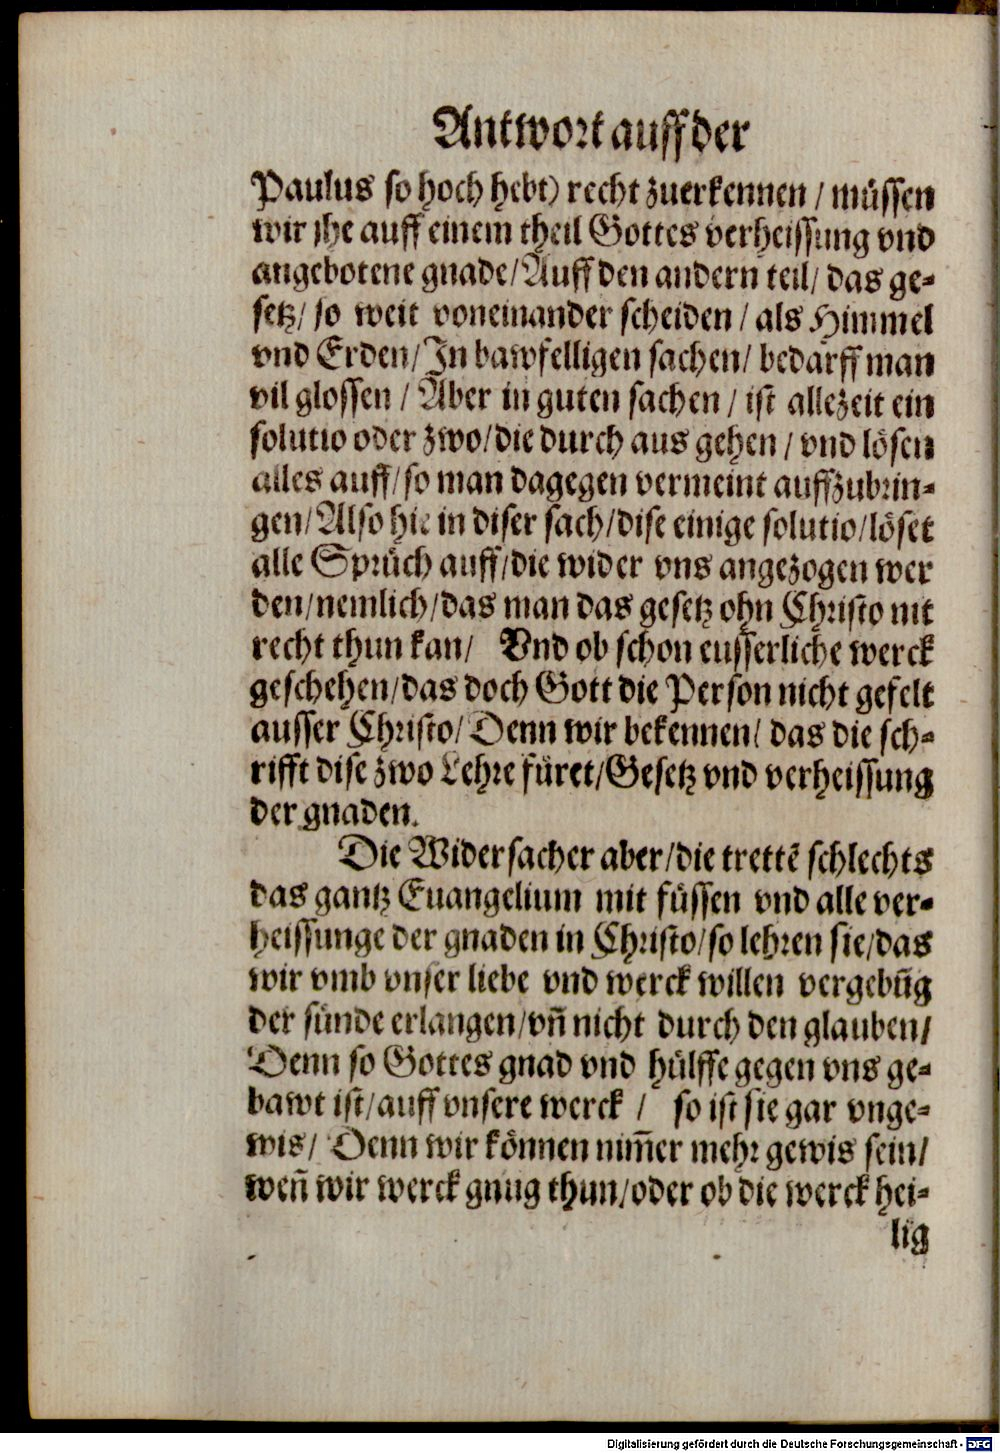 Antwort auff der
Paulus so hoch hebt) recht zuerkennen / müssen
wir jhe auff einem theil Gottes verheissung vnd
angebotene gnade/Auff den andern teil/ das ge-
setz/ so weit voneinander scheiden / als Himmel
vnd Erden/In bawfelligen sachen/ bedarff man
vil glossen / Aber in guten sachen / ist allezeit ein
solutio oder zwo/die durch aus gehen / vnd lösen
alles auff/so man dagegen vermeint auffzubrin-
gen/Also hie in diser sach/dise einige solutio/löset
alle Sprüch auff/die wider vns angezogen wer
den/nemlich/das man das gesetz ohn Christo nit
recht thun kan/ Vnd ob schon eusserliche werck
geschehen/das doch Gott die Person nicht gefelt
ausser Christo/Denn wir bekennen/ das die sch-
rifft dise zwo Lehre füret/Gesetz vnd verheissung
der gnaden.
Die Widersacher aber/die trettē schlechts
das gantz Euangelium mit füssen vnd alle ver-
heissunge der gnaden in Christo/so lehren sie/das
wir vmb vnser liebe vnd werck willen vergebūg
der sünde erlangen/vn̄ nicht durch den glauben/
Denn so Gottes gnad vnd hülffe gegen vns ge-
bawt ist/auff vnsere werck / so ist sie gar vnge-
wis/ Denn wir können nim̄er mehr gewis sein/
wen̄ wir werck gnug thun/oder ob die werck hei-
lig
Digitalisierung gefördert durch die Deutsche Forschungsgemeinschaft - DFG